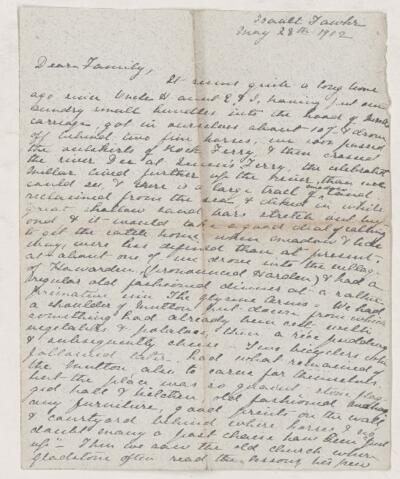 May 28th 1902
Dear Family,
It seems quite a long time
ago since Uncle H. aunt E. & I, having put our
sundry small bundles into the hood of
carriage, got in ourselves about 10 & drove
off behind two fine horses, we soon passed
the outskirts of Rock Ferry, & then crossed
the river Dee at Queen's Ferry, the celebrated
Millar lived further up the river, than we
could see, & there is a large tract of land
reclaimed from the sea & diked in while
great shallow sand bars stretch out be-
yond & it would take a good deal of calling
to get the cattle home when meadow & late
may, were less defined than at present.
at about one o'c we drove into the village
of Hawarden, (pronounced Harden) & had a
regular old fashioned dinner at a rather
primative inn The Glynne Arms. We had
a shoulder of mutton put down from which
something had already been cut with
vegetables & potatoes, then a rice pudding
& subsequently cheese. Two bicyclers who
followed had what remained of
the mutton also to carve for themselves
but the place was so quaint stone flag-
ged hall & kitchen old fashioned
any furniture, good prints on the wall
& courtyard behind where horses & no
doubt many a post chaise have been "put
up". Then we saw the old church where
Gladstone often read the lessons, his pew